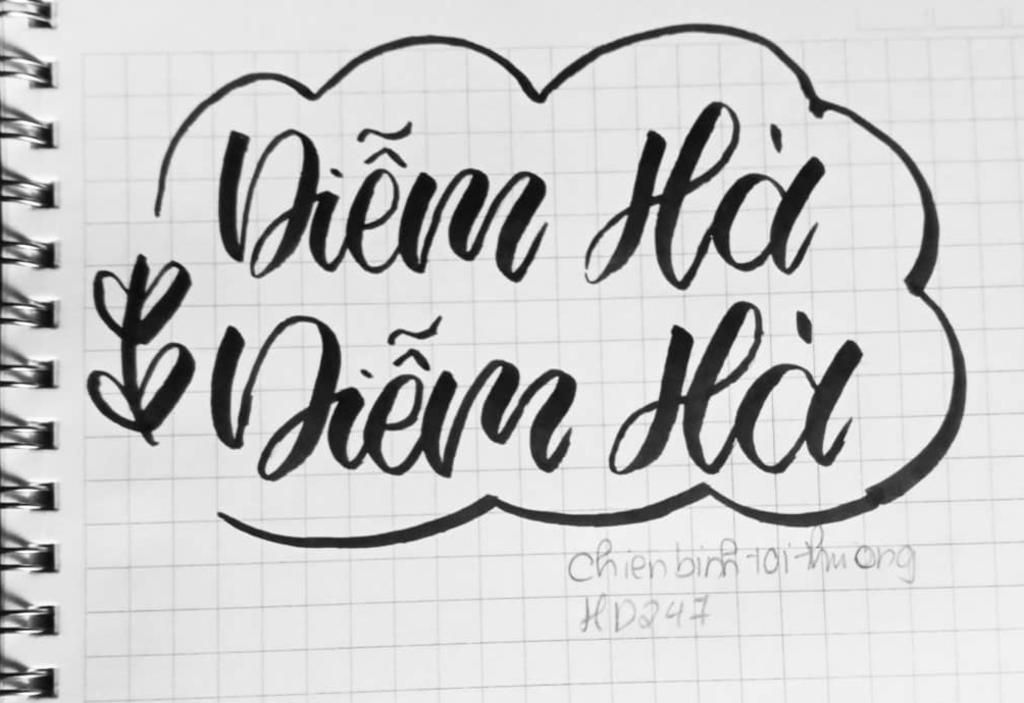 Diễm Hà
Diễm Hà
chienbinh-toi-thuong
HD247